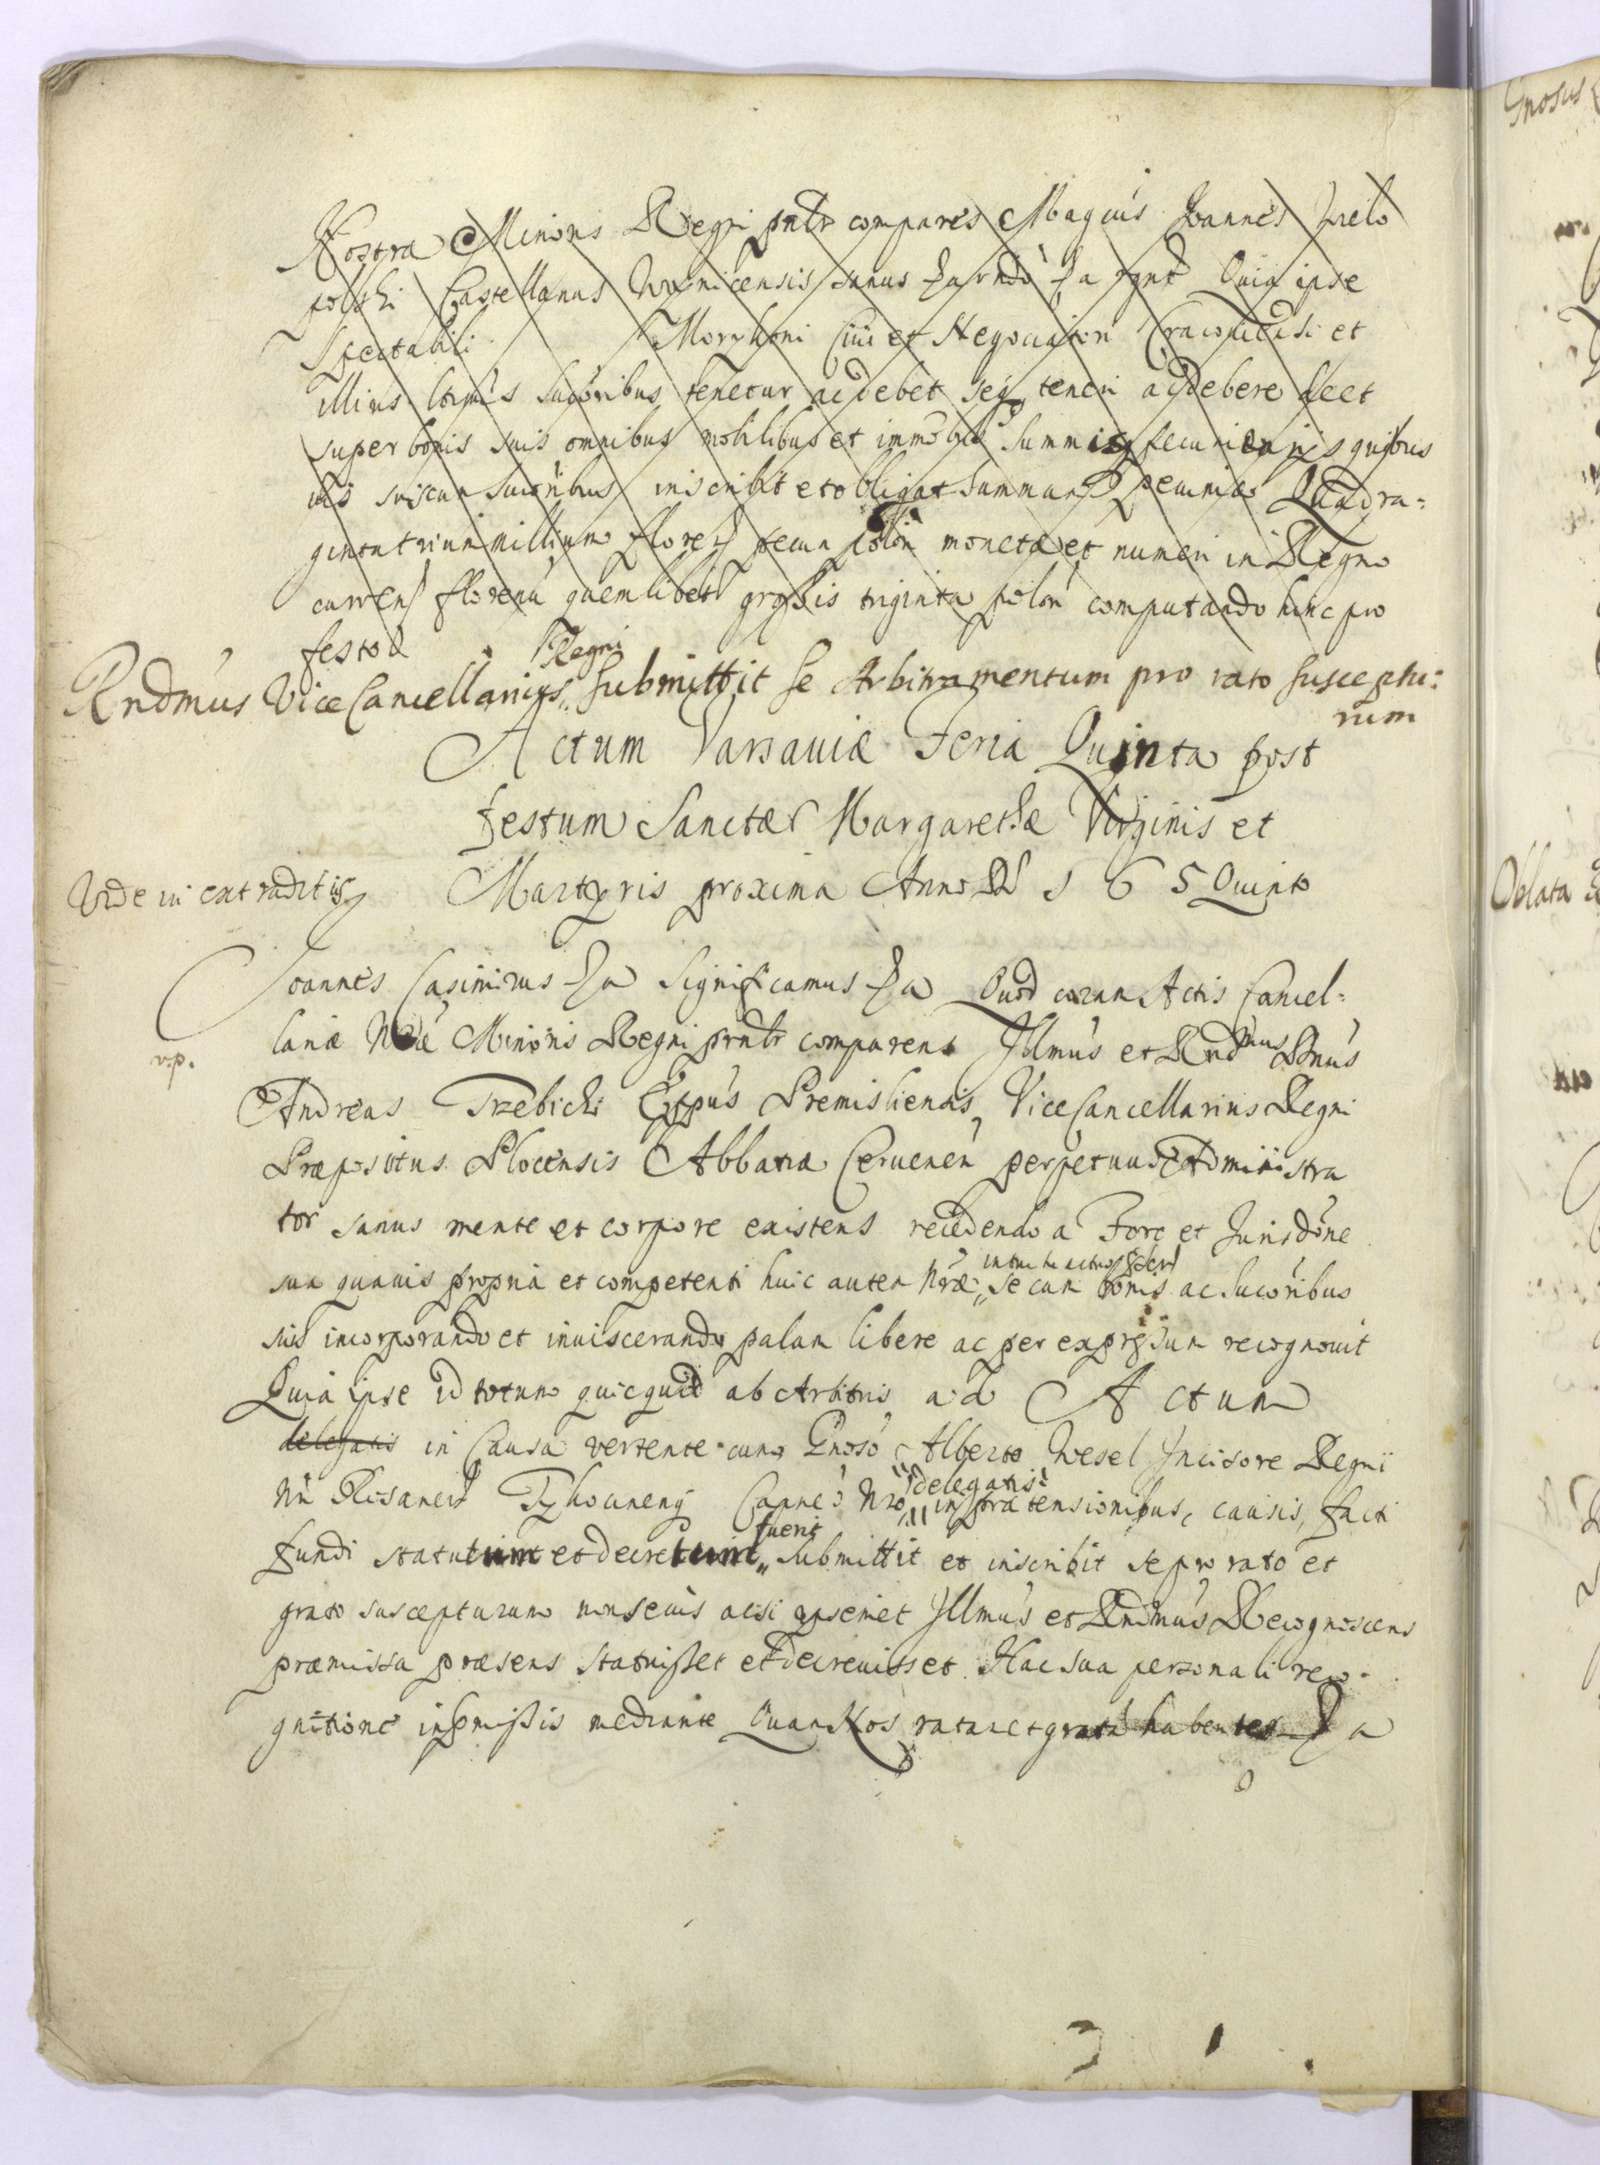 Nostra Minoris Regni pntr comparēs Magcus Joannes Wielo
polski Castellanus Woynicensis sanus Quia ipse
Spectabili Morykoni Ciui et Negociatori Cracouiensi et
illius ltimis Sucoribus tenetur ac debet seq teneri ac debere
super bonis suis omnibus mobilibus et immobil Summisq pecuniarijs quibus
uis suis cum Sucoribus inscribit et obligat Summam Pecuniæ Quadra=
ginta trium millium floren pecun polon monetæ et numeri in Regno
curren florenū quemlibet grossis triginta polon computando hinc pro
festo
Rndmus ViceCancellarius Regni submittit se Arbitramentum pro rato susceptu:
rum
Actum Varsauiæ Feria Quinta post
festum Sanctæ Margarethæ Virginis et
Martyris proxima Anno D 165 Quinto
Vide in extraditis
Joannes Casimirus Significamus Quod coram Actis Cancel=
lariæ Nræ Minoris Regni prntr comparens Illmus et Rndmus Dnus
vp.
Andreas Trzebicki Eppus Premisliensis, ViceCancellarius Regni
Præpositus Plocensis Abbatiæ Ceruenen perpetuus Administra
tor sanus mente et corpore existens recedendo a Foro et Jurisdōne
sua quauis propria et competenti huic autem Nræ se cum bonis ac Sucoribus
suis incorporando et inuiscerando palam libere ac per expressum recognouit
Quia ipse id totum quicquid ab Arbitris ad Actum
delegatis in Causa vertente cum Gnoso Alberto Wesel Incisore Regni
Nri Rosanen Tykocinen Capneo Nro delegatis in prætensionibus, causis, facti
fundi statutum et decretum fuerit submittit et inscribit se pro rato et
grato suscepturum non secus acsi ipsemet Illmus et Rndmus Recognoscens
præmissa præsens statuisset et decreuisset. Hac sua personali reco=
gnitione in præmissis mediante Quam Nos ratam et gratā habentes